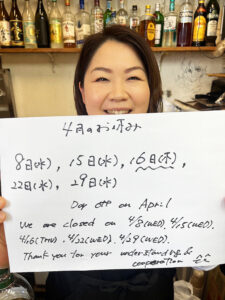 4月のお休み
8日(水), 15日(水), 16日(木),
22日(水), 29日(水)
Day off on April
We are closed on 4/8(WED), 4/15(WED),
4/16(THU), 4/22(WED), 4/29(WED).
Thank you for your understanding &
cooperation